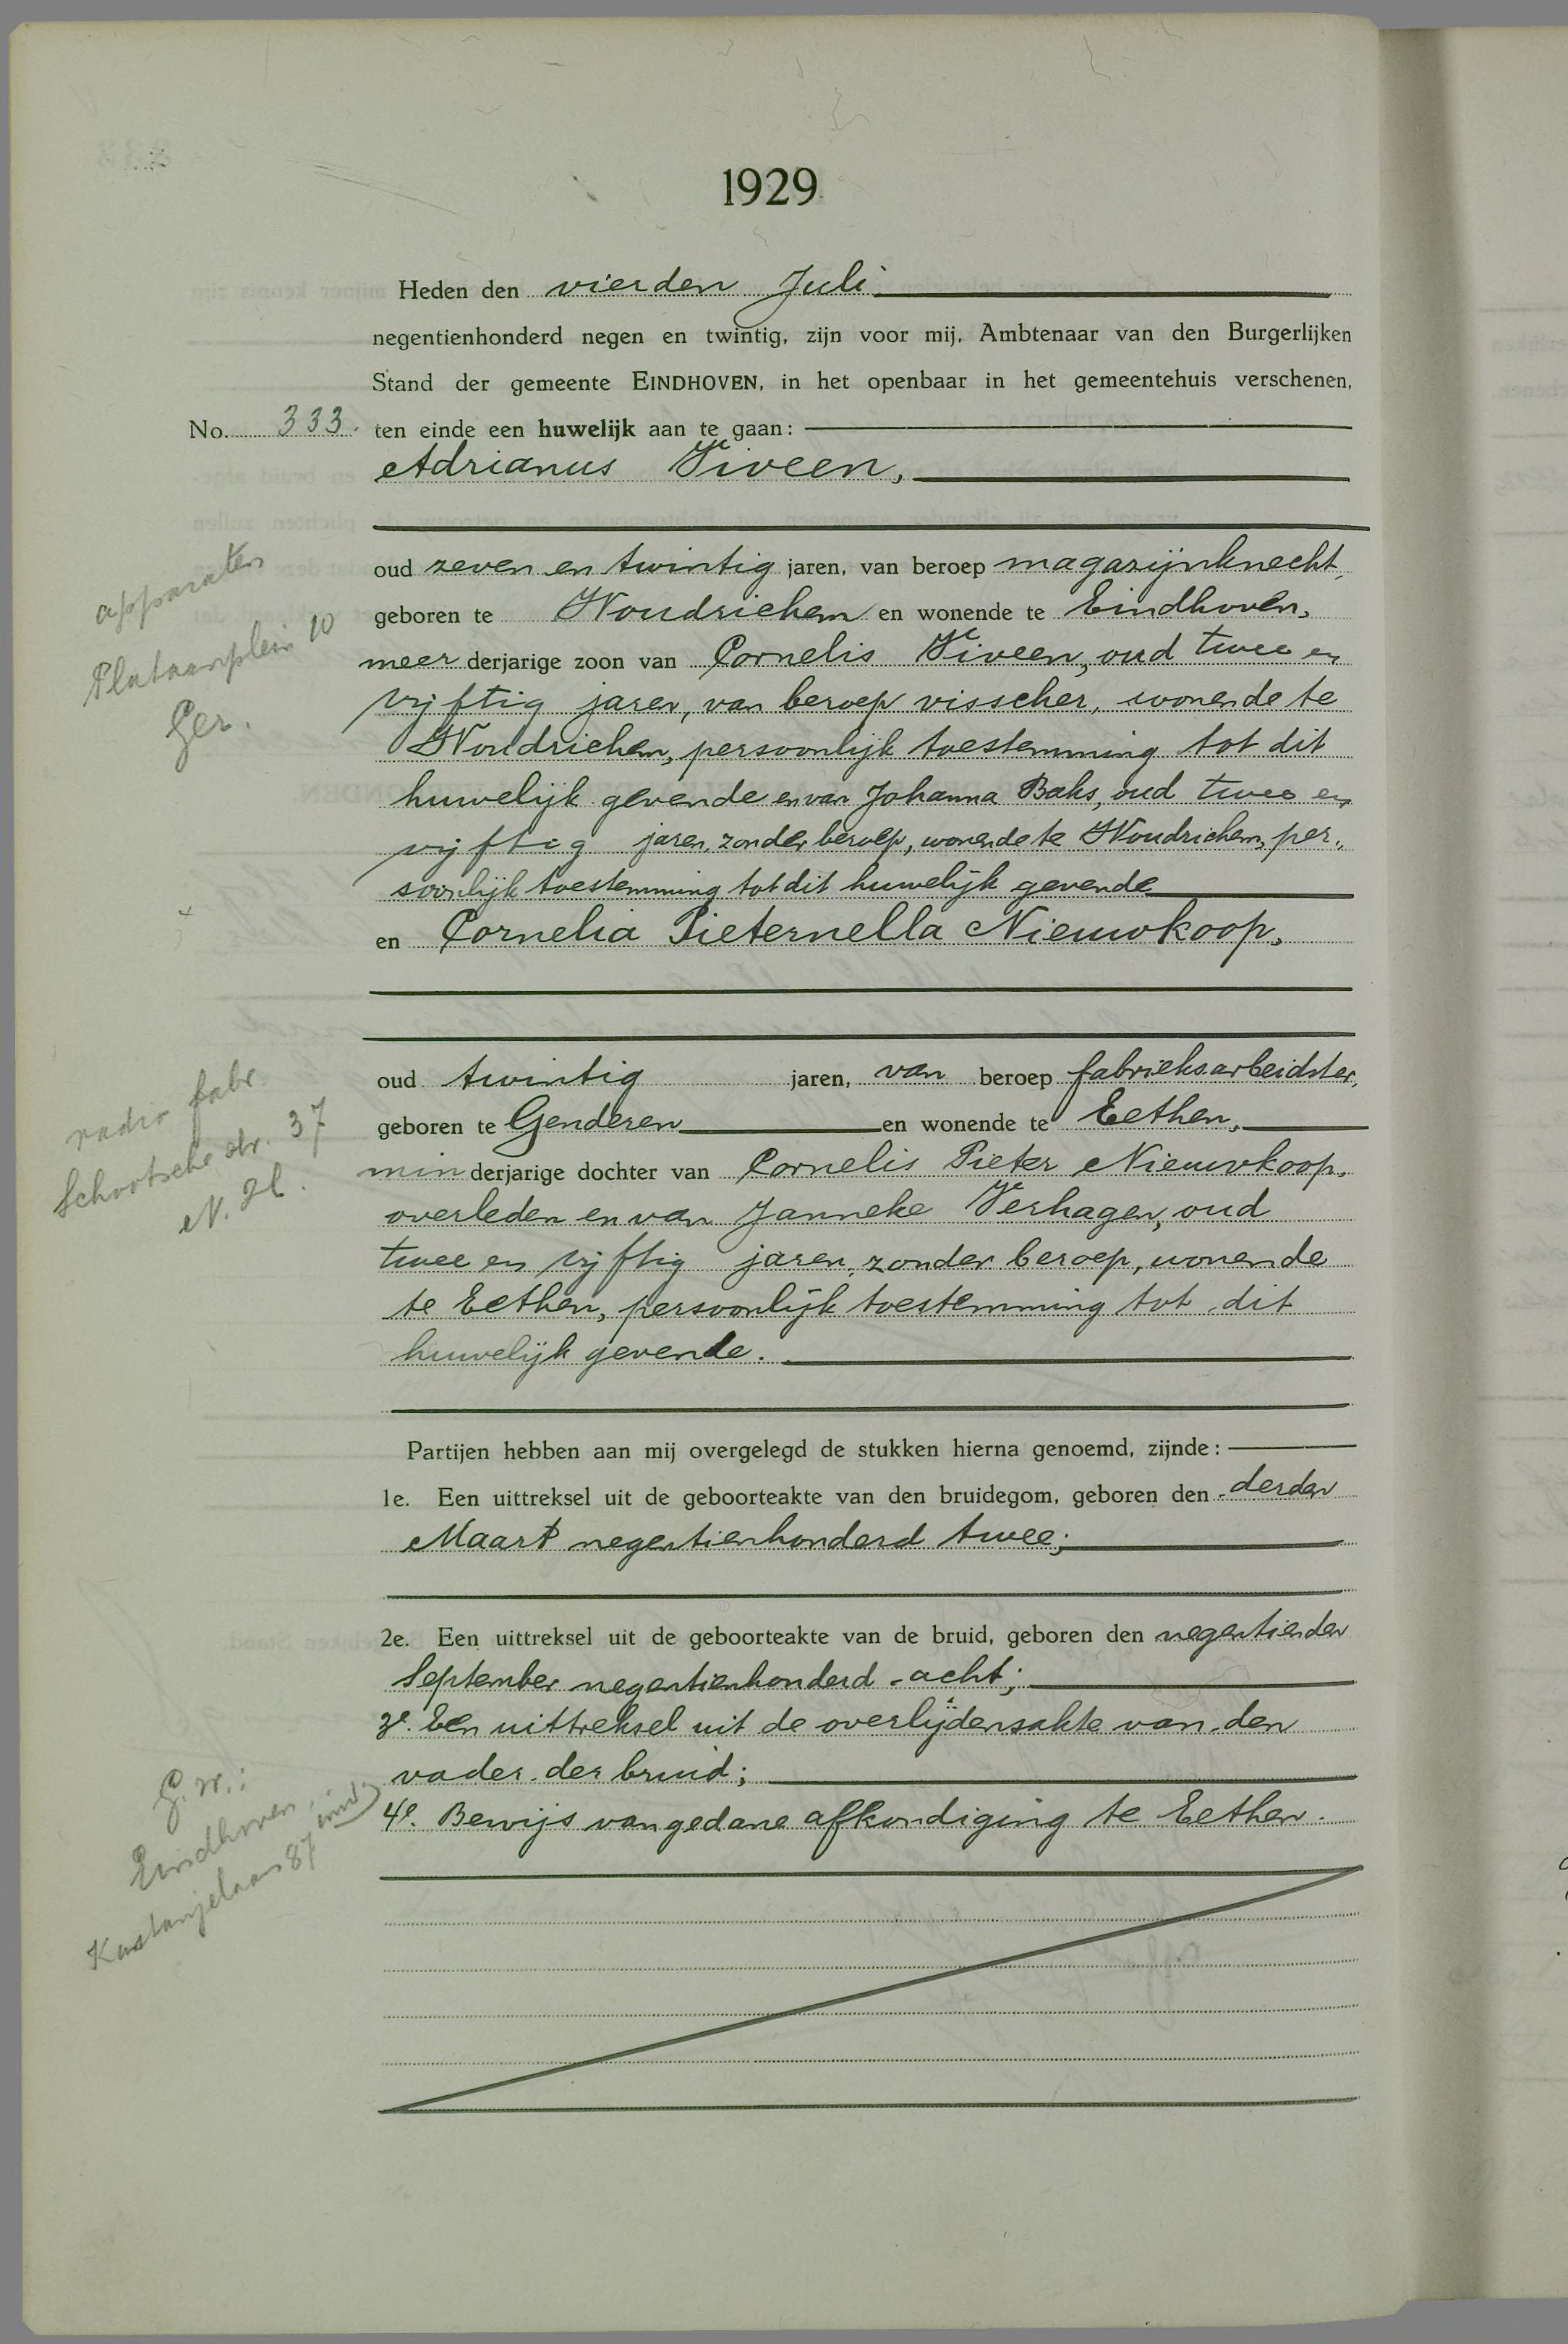 1929
Heden den vierden Juli
negentienhonderd negen en twintig, zijn voor mij, Ambtenaar van den Burgerlijken
Stand der gemeente EINDHOVEN, in het openbaar in het gemeentehuis verschenen,
No. 333. ten einde een huwelijk aan te gaan:
Adrianus Viveen,
oud zeven en twintig jaren, van beroep magazijnknecht,
geboren te Woudrichem en wonende te Eindhoven,
meerderjarige zoon van Cornelis Viveen, oud twee en
vijftig jaren, van beroep visscher, wonende te
Woudrichem, persoonlijk toestemming tot dit
huwelijk gevende en van Johanna Baks, oud twee en
vijftig jaren, zonder beroep, wonende te Woudrichem, per„
soonlijk toestemming tot dit huwelijk gevende
en Cornelia Pieternella Nieuwkoop,
oud twintig jaren, van beroep fabrieksarbeidster,
geboren te Genderen en wonende te Eethen,
minderjarige dochter van Cornelis Pieter Nieuwkoop,
overleden en van Janneke Verhagen, oud
twee en vijftig jaren, zonder beroep, wonende
te Eethen, persoonlijk toestemming tot dit
huwelijk gevende.
Partijen hebben aan mij overgelegd de stukken hierna genoemd, zijnde:
1e. Een uittreksel uit de geboorteakte van den bruidegom, geboren den derden
Maart negentienhonderd twee;
2e. Een uittreksel uit de geboorteakte van de bruid, geboren den negentienden
September negentienhonderd acht;
3e. Een uittreksel uit de overlijdensakte van den
vader der bruid;
4e. Bewijs van gedane afkondiging te Eethen.
apparaten
Plataanplein 10
Ger.
radio fabr.
Schootsche str. 37
N. H.
G. w.:
Eindhoven,
Kastanjelaan 87